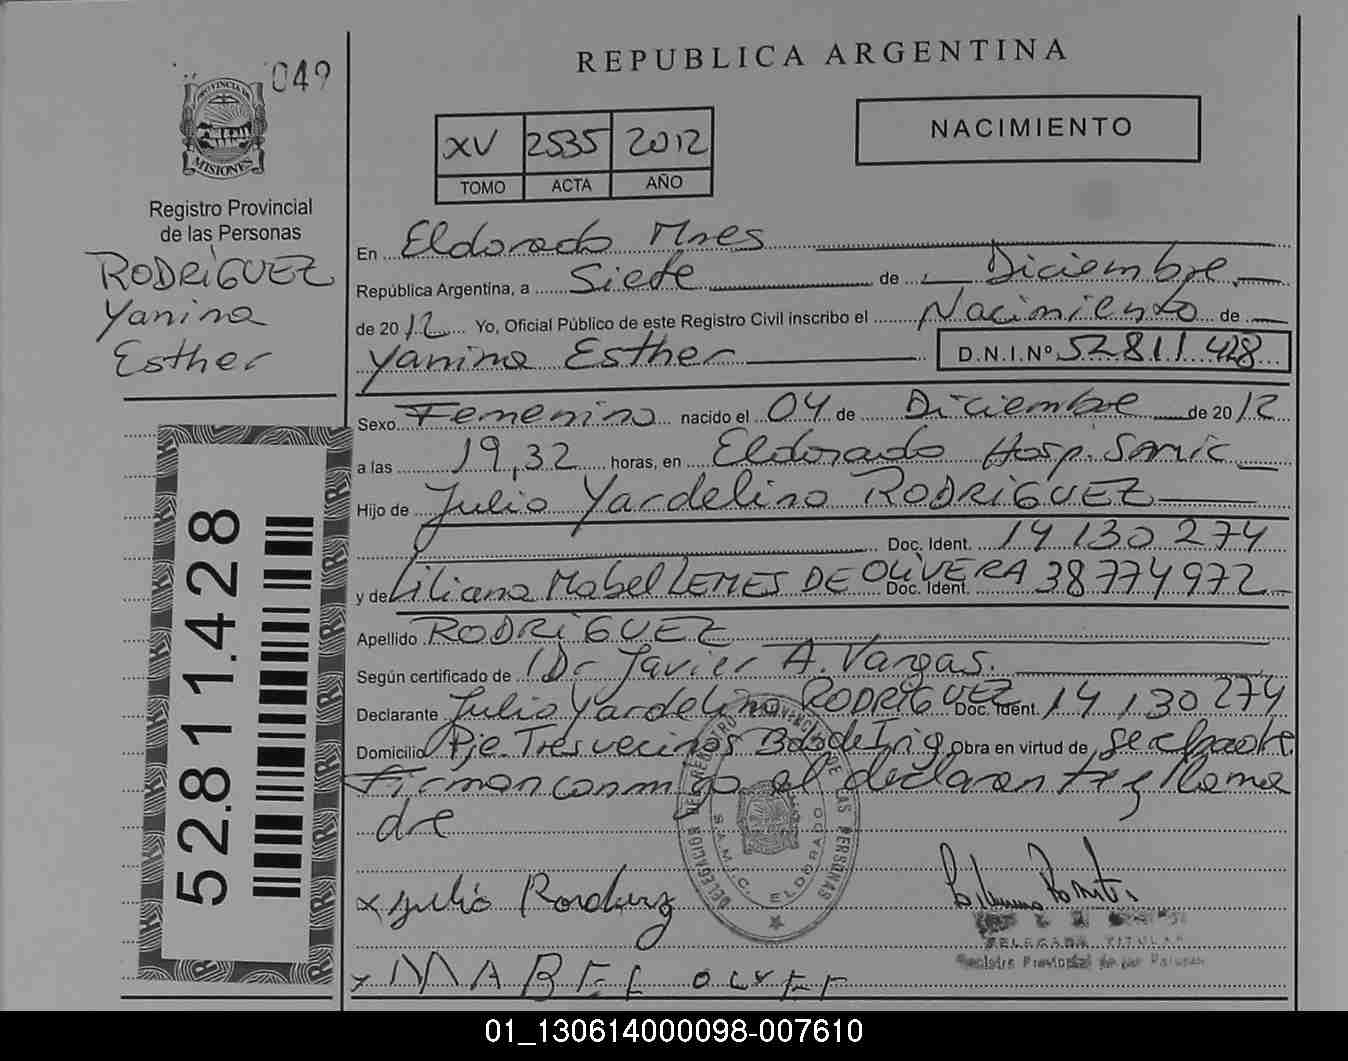 049
PROVINCIA DE
MISIONES
Registro Provincial
de las Personas
RODRÍGUEZ
Yanina
Esther
52.811.428
REPUBLICA ARGENTINA
XV 2535 2012
TOMO ACTA AÑO
NACIMIENTO
En Eldorado Mnes
República Argentina, a Siete de Diciembre
de 2012 Yo, Oficial Público de este Registro Civil inscribo el Nacimiento de
Yanina Esther D.N.I.Nº 52811428
Sexo Femenino nacido el 04 de Diciembre de 2012
a las 19,32 horas, en Eldorado Hosp. Samic
Hijo de Julio Yardelino RODRÍGUEZ
Doc. Ident. 14130274
y de Liliana Mabel LEMES DE OLIVERA Doc. Ident. 38774972
Apellido RODRÍGUEZ
Según certificado de Dr Javier A. Vargas.
Declarante Julio Yardelino RODRÍGUEZ Doc. Ident. 14130274
Domicilio Pje. Tres vecinos Obra en virtud de
Firman conmigo el declarante y la ma
dre
DELEGACIÓN DE REGISTRO PROVINCIAL DE LAS PERSONAS
S.A.M.I.C. ELDORADO
x julio
DELEGADA TITULAR
Registro Provincial de las Personas
x MABEL
01_130614000098-007610